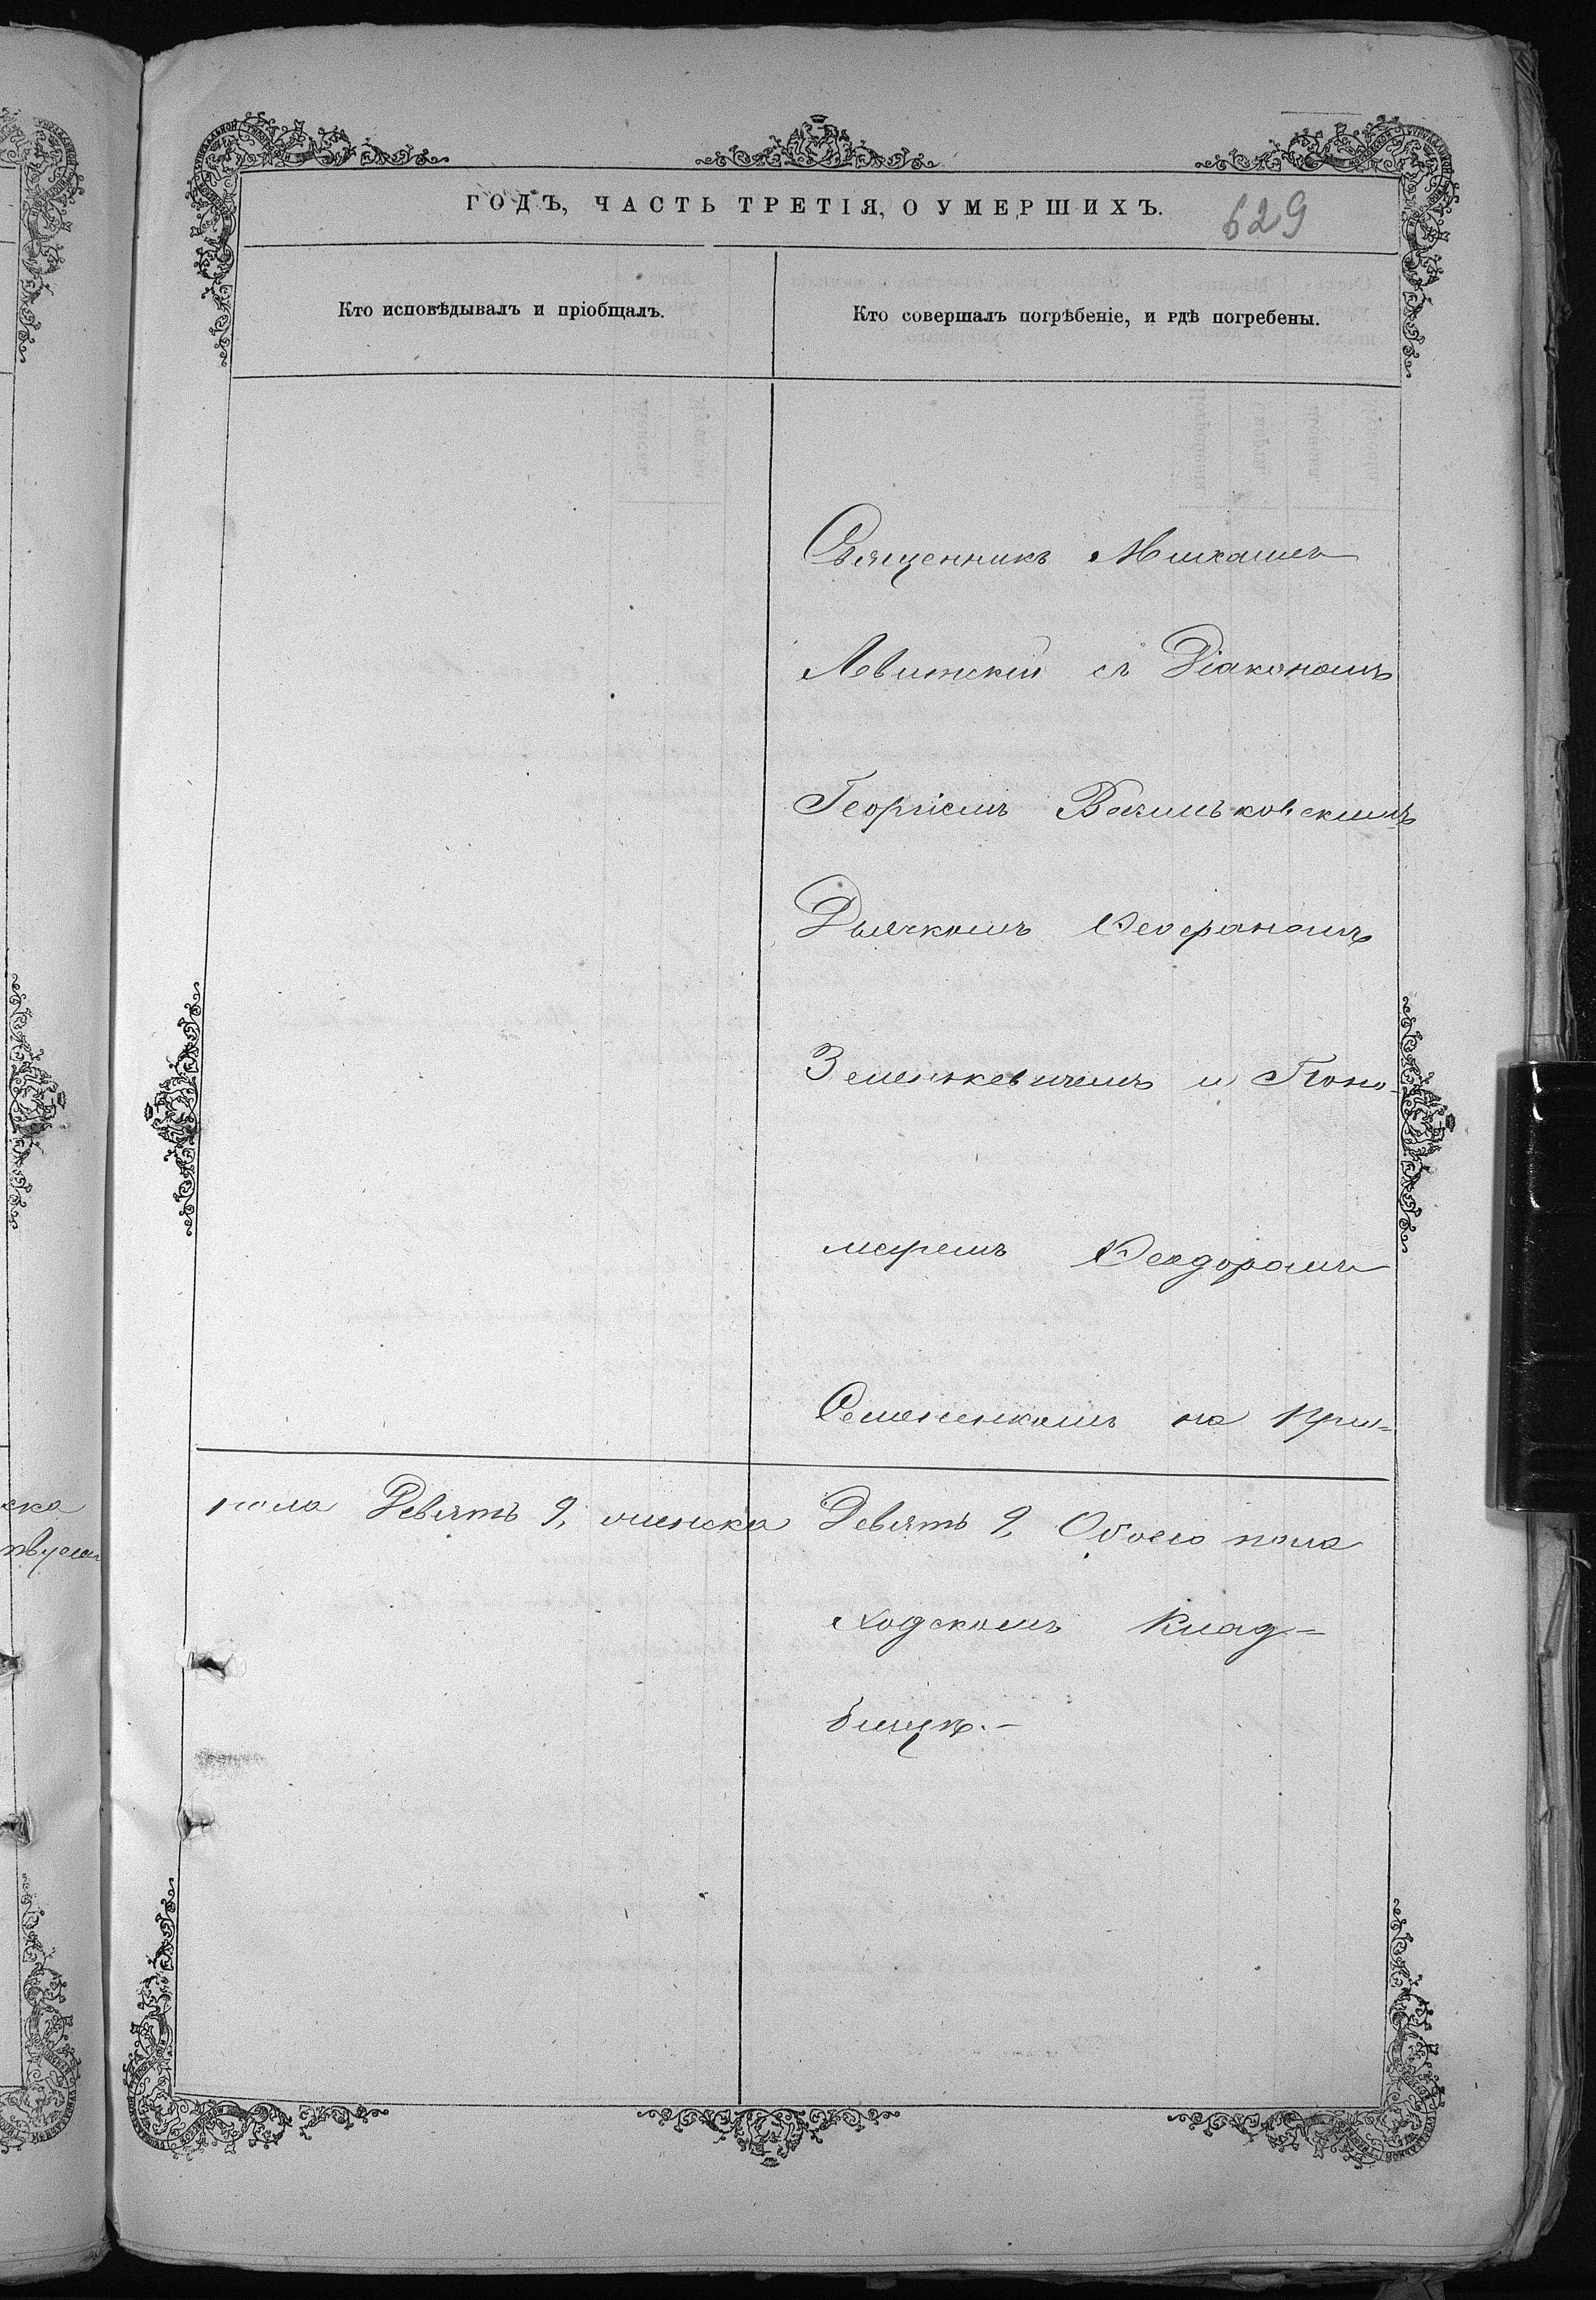 ГОДЪ, ЧАСТЬ ТРЕТІЯ, О УМЕРШИХЪ.
629
Кто исповѣдывалъ и пріобщалъ.
Кто совершалъ погрѣбеніе, и гдѣ погребены.
Священникъ Михаилъ
Левитскій съ Діакономъ
Георгіемъ Васильковскимъ
Дьячкомъ Ѳеофаномъ
Земенкевичемъ и Поно-
маремъ Ѳеодоромъ
Семененкомъ на При=
ска
пола Девять 9, женска Девять 9, Обоего пола
ходскомъ Клад=
бищѣ.-